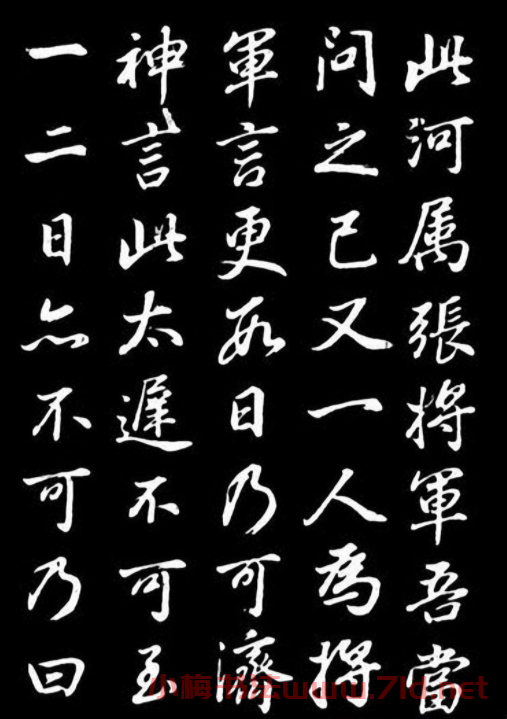 此河属張將軍吾當
問之已又一人為將
軍言更數日乃可濟
神言此太遲不可至
一二日亦不可乃曰
小梅书法www.7ld.net